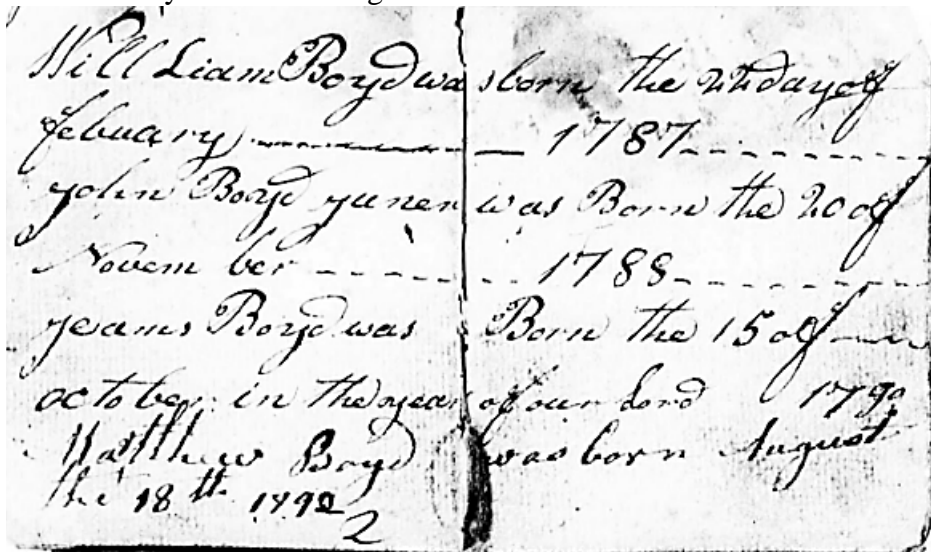 Will Liam Boyd was born the 22 day of
febuary 1787
john Boyd juner was Born the 20 of
Novem ber 1788
jeams Boyd was Born the 15 of
october in the year of our Lord 1790
Matthew Boyd was born August
the 18th 1792
2